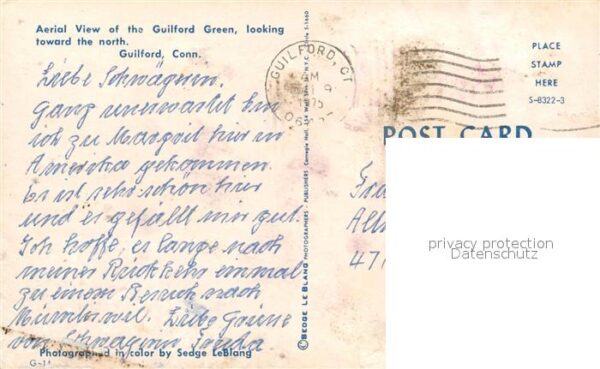 Aerial View of the Guilford Green, looking
toward the north.
Guilford, Conn.
Liebe Schwägerin.
Ganz unerwartet bin
ich zu Margrit hier in
Amerika gekommen.
Es ist sehr schön hier
und es gefällt mir gut.
Ich hoffe, es lange nach
meiner Rückkehr einmal
zu einem Besuch nach
Liebe Grüsse
von Schwägerin
Photographed in color by Sedge LeBlang
G-11
GUILFORD, CT
AM
9
1975
© SEDGE LE BLANG PHOTOGRAPHERS - PUBLISHERS
PLACE
STAMP
HERE
S-8322-3
POST CARD
47
privacy protection
Datenschutz